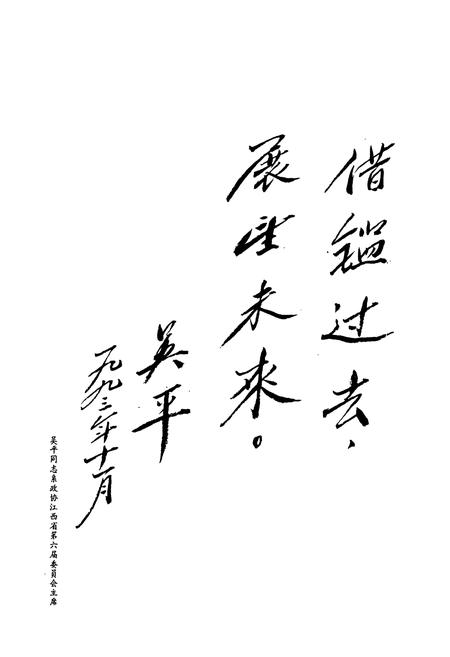 借鑑过去、
展望未來。
吴平
一九九三年十一月
吴平同志系政协江西省第六届委員会主席